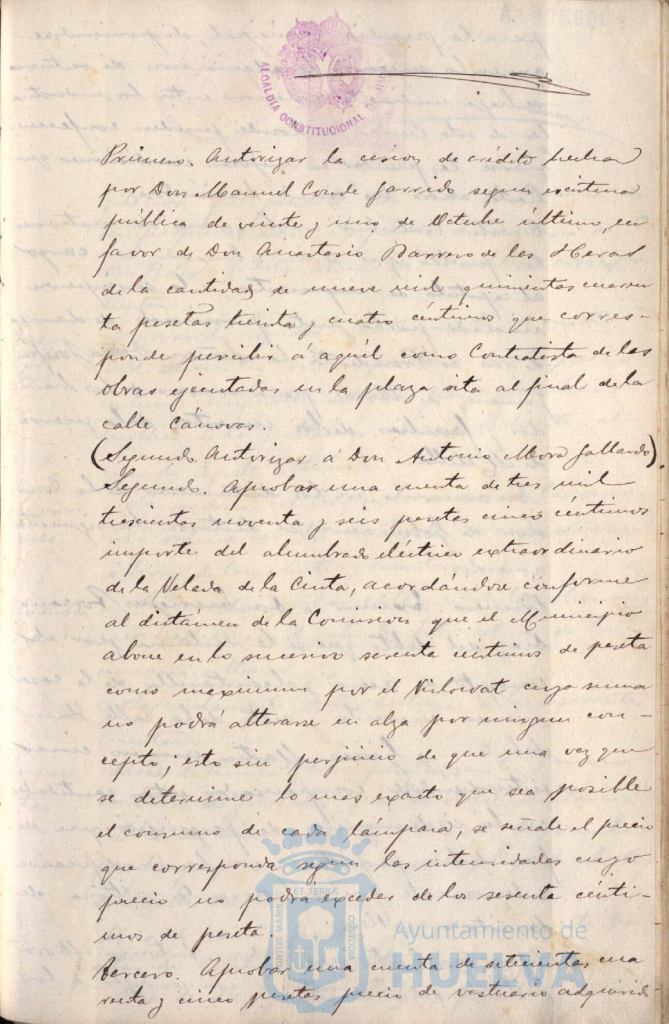 ALCALDIA CONSTITUCIONAL DE HUELVA
Primero. Autorizar la cesion de crédito hecha
por Don Manuel Conde Garrido segun escritura
pública de veinte y uno de Octubre último, en
favor de Don Anastasio Barrero de las Heras
de la cantidad de nueve mil quinientas cuaren
ta pesetas treinta y cuatro céntimos que corres-
ponde percibir á aquél como Contratista de las
obras ejecutadas en la plaza sita al final de la
calle Cánovas.
(Segundo. Autorizar á Don Antonio Mora Gallardo).
Segundo. Aprobar una cuenta de tres mil
trescientas noventa y seis pesetas cinco céntimos
importe del alumbrado eléctrico extraordinario
de la Velada de la Cinta, acordándose conforme
al dictámen de la Comision que el Municipio
abone en lo sucesivo sesenta céntimos de peseta
como maximum por el Kilowat cuya suma
no podrá alterarse en alza por ningun con-
cepto; esto sin perjuicio de que una vez que
se determine lo mas exacto que sea posible
el consumo de cada lámpara, se señale el precio
que corresponda segun las intensidades cuyo
precio no podrá exceder de los sesenta cénti-
mos de peseta.
Tercero. Aprobar una cuenta de setecientas cua
renta y cinco pesetas precio de vestuario adquirido
PORTUS MARIS ET TERRÆ CUSTODIA
Ayuntamiento de
HUELVA